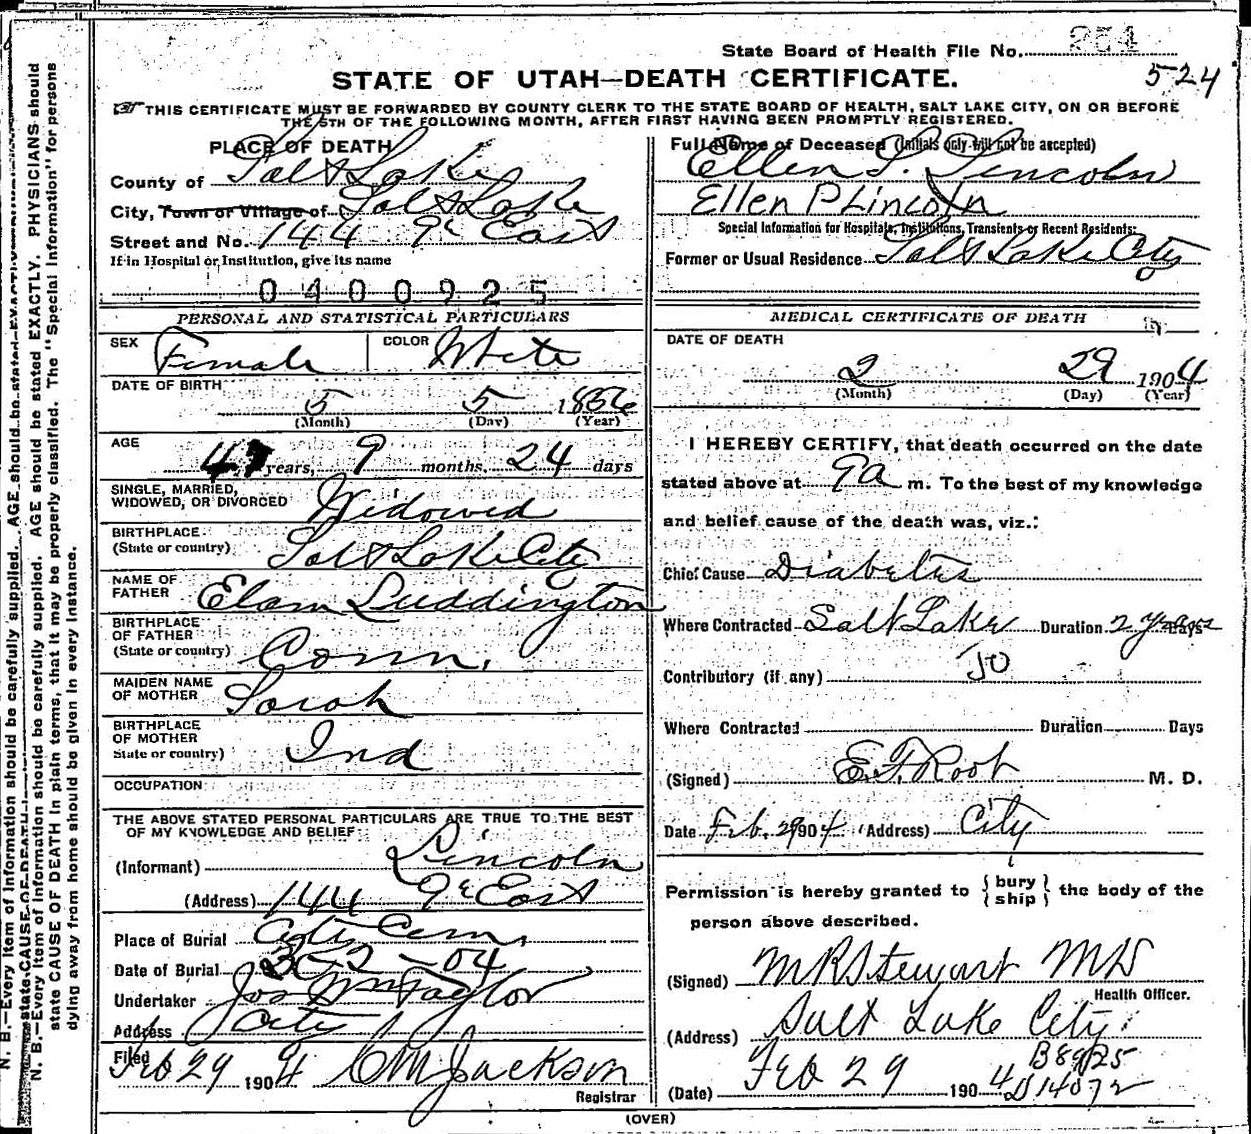 State Board of Health File No. 254
524
STATE OF UTAH—DEATH CERTIFICATE.
THIS CERTIFICATE MUST BE FORWARDED BY COUNTY CLERK TO THE STATE BOARD OF HEALTH, SALT LAKE CITY, ON OR BEFORE
THE 5TH OF THE FOLLOWING MONTH, AFTER FIRST HAVING BEEN PROMPTLY REGISTERED.
PLACE OF DEATH
County of Salt Lake
City, Town or Village of Salt Lake
Street and No. 144 9th East
If in Hospital or Institution, give its name
0400925
Full Name of Deceased (Initials only will not be accepted)
Ellen S. Lincoln
Ellen P Lincoln
Special Information for Hospitals, Institutions, Transients or Recent Residents:
Former or Usual Residence Salt Lake City
PERSONAL AND STATISTICAL PARTICULARS
SEX Female COLOR White
DATE OF BIRTH
5 5 1856
(Month) (Day) (Year)
AGE 47 years, 9 months, 24 days
SINGLE, MARRIED,
WIDOWED, OR DIVORCED Widowed
BIRTHPLACE
(State or country) Salt Lake City
NAME OF
FATHER Elam Luddington
BIRTHPLACE
OF FATHER
(State or country) Conn.
MAIDEN NAME
OF MOTHER Sarah
BIRTHPLACE
OF MOTHER
State or country) Ind
OCCUPATION
THE ABOVE STATED PERSONAL PARTICULARS ARE TRUE TO THE BEST
OF MY KNOWLEDGE AND BELIEF
(Informant) Lincoln
(Address) 144 9th East
Place of Burial City Cem.
Date of Burial 3-2-04
Undertaker Jos Wm Taylor
Address City
Filed Feb 29 1904 C M Jackson
Registrar
MEDICAL CERTIFICATE OF DEATH
DATE OF DEATH
2 29 1904
(Month) (Day) (Year)
I HEREBY CERTIFY, that death occurred on the date
stated above at 9a m. To the best of my knowledge
and belief cause of the death was, viz.:
Chief Cause Diabetes
Where Contracted Salt Lake Duration 2 years Days
Contributory (if any) 50
Where Contracted Duration Days
(Signed) E. F. Root M. D.
Date Feb. 29 1904 (Address) City
Permission is hereby granted to {bury
ship} the body of the
person above described.
(Signed) M R Stewart MD
Health Officer.
(Address) Salt Lake City
B8925
(Date) Feb 29 1904 D14072
(OVER)
N. B.—Every item of information should be carefully supplied. AGE should be stated EXACTLY. PHYSICIANS should
state CAUSE OF DEATH in plain terms, that it may be properly classified. The "Special Information" for persons
dying away from home should be given in every instance.